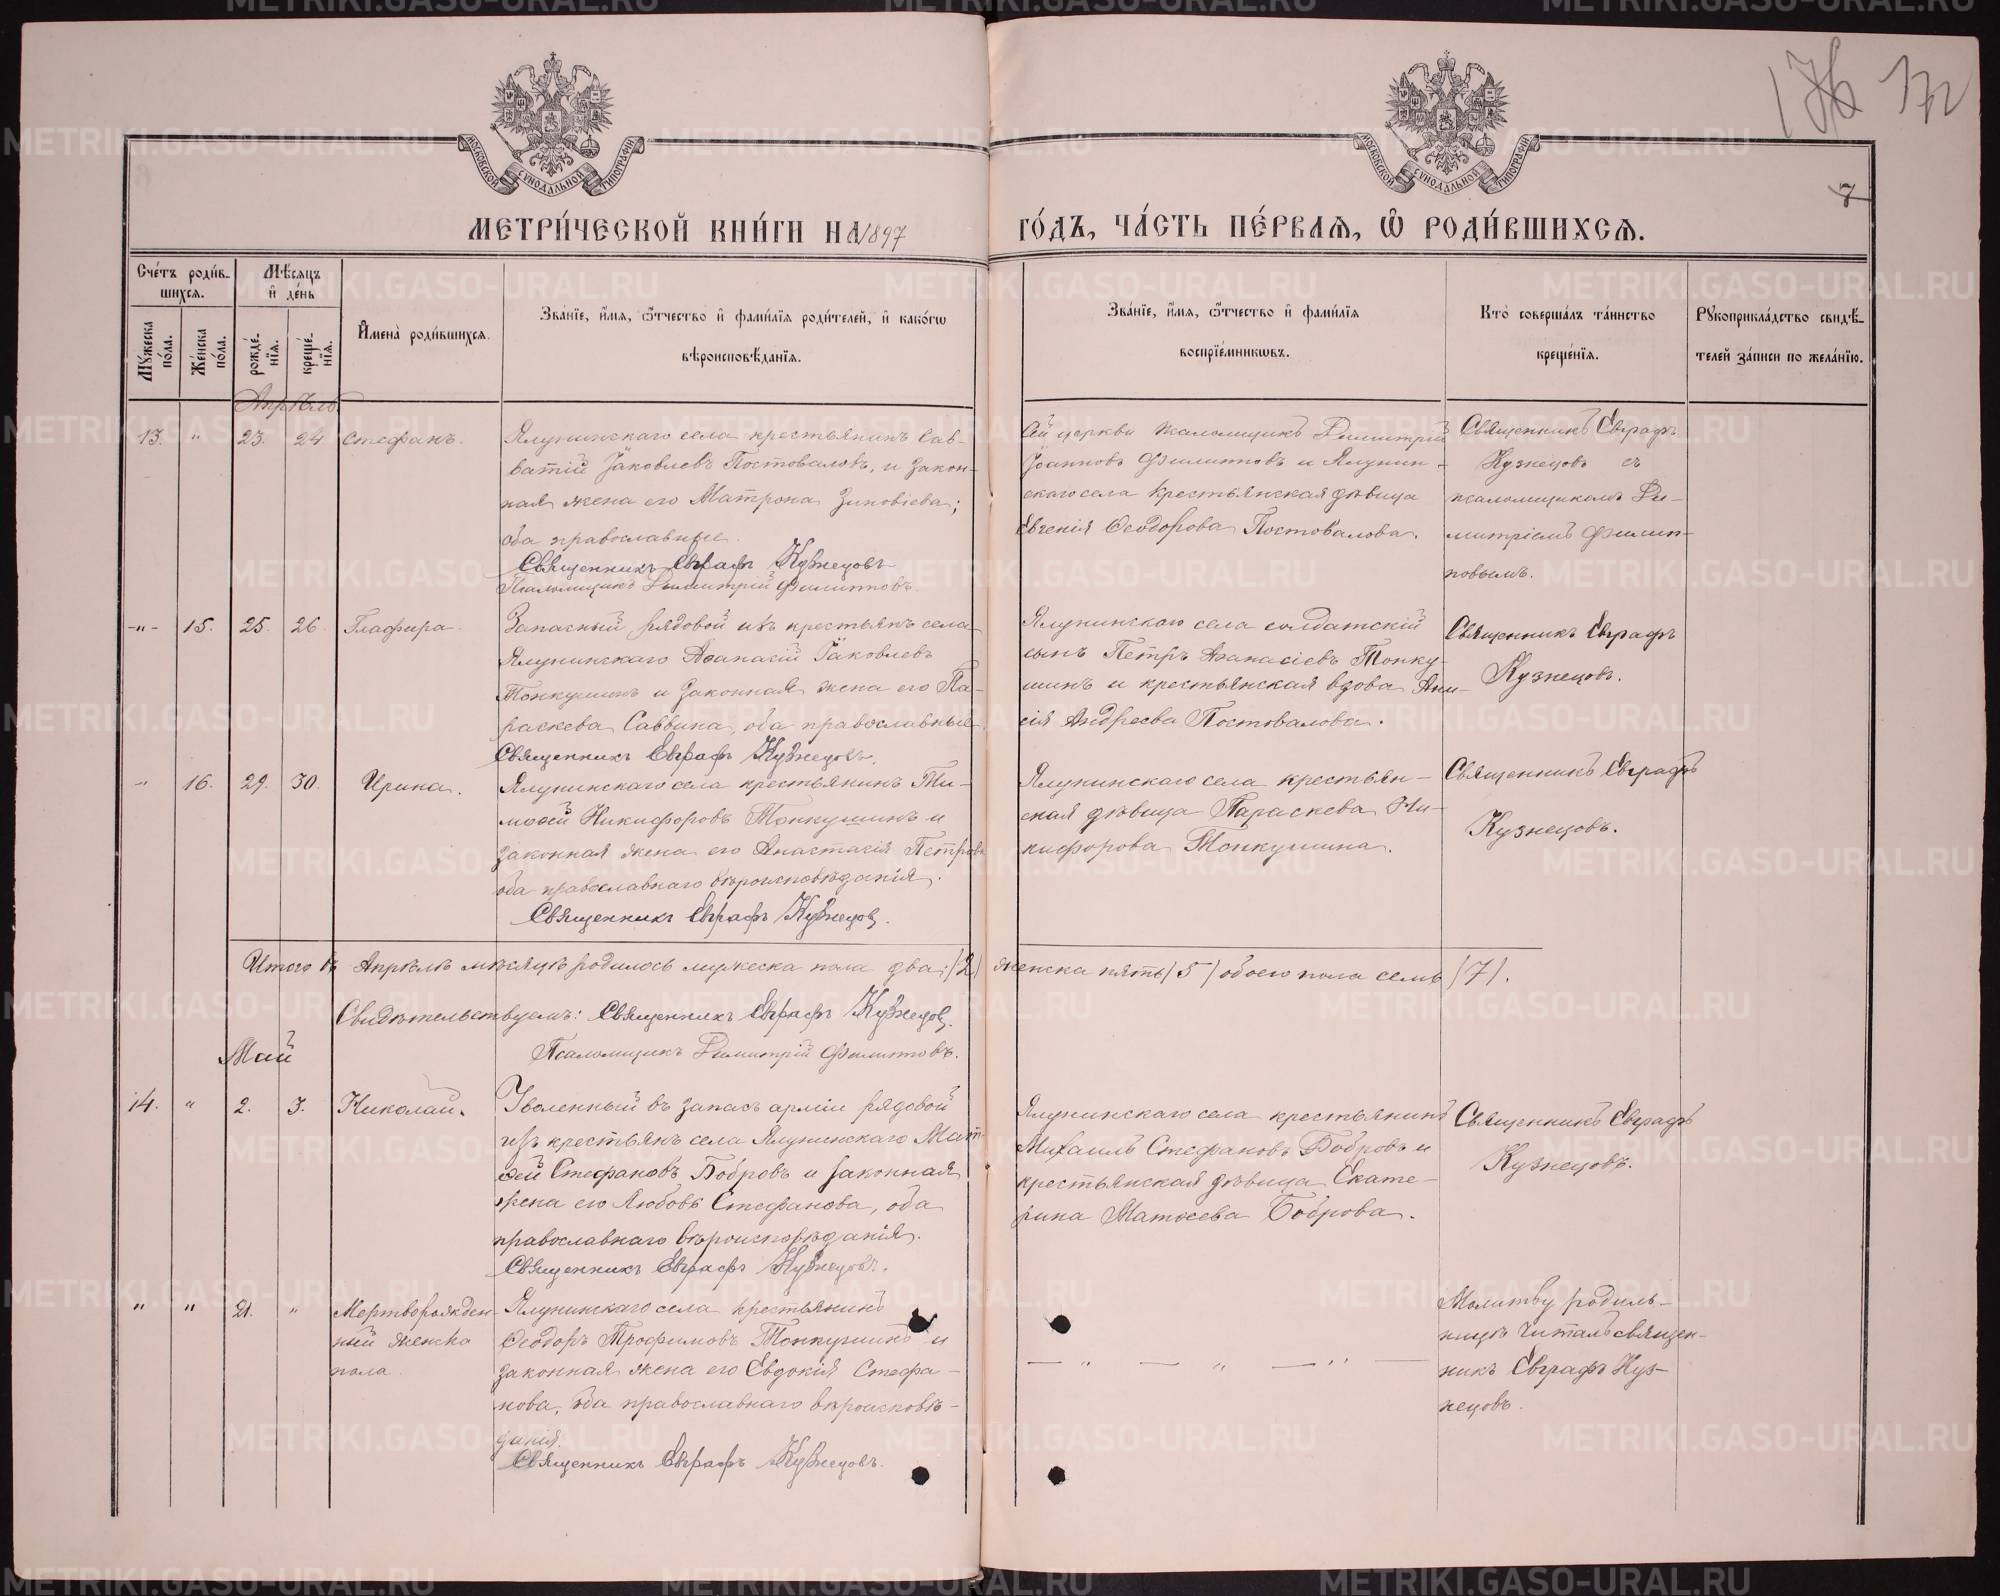 176 172
МОСКОВСКОЙ СѴНОДАЛЬНОЙ ТИПОГРАФІИ
МОСКОВСКОЙ СѴНОДАЛЬНОЙ ТИПОГРАФІИ
7
МЕТРИ́ЧЕСКОЙ КНИ́ГИ НА 1897
ГО́ДЪ, ЧА́СТЬ ПЕ́РВАѦ, Ѡ҆ РОДИ́ВШИХСѦ.
Сче́тъ роди́в-
шихсѧ.
Мꙋ́жеска по́ла.
Же́нска по́ла.
Мѣ́сѧцъ
и҆ де́нь
рожде́-
нїѧ.
креще́-
нїѧ.
И҆мена̀ роди́вшихсѧ.
Зва́нїе, и҆́мѧ, ѻ҆́тчество и҆ фами́лїѧ роди́телей, и҆ како́гѡ
вѣроисповѣ́данїѧ.
Зва́нїе, и҆́мѧ, ѻ҆́тчество и҆ фами́лїѧ
воспрїе́мникѡвъ.
Кто̀ соверша́лъ та́инство
креще́нїѧ.
Рꙋкоприкла́дство свидѣ́-
телей за́писи по жела́нїю.
Апрѣль
13. " 23. 24 Стефанъ.
Ялунинскаго села крестьянинъ Сав-
ватій Іаковлевъ Постоваловъ, и закон-
ная жена его Матрона Зиновіева;
оба православные.
Священникъ Евграфъ Кузнецовъ
Псаломщикъ Димитрій Филипповъ.
Сей церкви псаломщикъ Димитрій
Іоанновъ Филипповъ и Ялунин-
скаго села крестьянская дѣвица
Евгенія Ѳеодорова Постовалова.
Священникъ Евграфъ
Кузнецовъ съ
псаломщикомъ Ди-
митріемъ Филип-
повымъ.
-"- 15. 25. 26. Глафира.
Запасный рядовой изъ крестьянъ села
Ялунинскаго Аѳанасій Іаковлевъ
Тонкушинъ и законная жена его Па-
раскева Саввина, оба православные.
Священникъ Евграфъ Кузнецовъ.
Ялунинскаго села солдатскій
сынъ Петръ Аѳанасіевъ Тонку-
шинъ и крестьянская вдова Ани-
сія Андреева Постовалова.
Священникъ Евграфъ
Кузнецовъ.
" 16. 29. 30. Ирина.
Ялунинскаго села крестьянинъ Ти-
моѳей Никифоровъ Тонкушинъ и
законная жена его Анастасія Петрова
оба православнаго вѣроисповѣданія.
Священникъ Евграфъ Кузнецов.
Ялунинскаго села крестьян-
ская дѣвица Параскева Ни-
кифорова Тонкушина.
Священникъ Евграфъ
Кузнецовъ.
Итого въ Апрѣлѣ мѣсяцѣ родилось мужеска пола два (2) женска пять (5) обоего пола семь (7).
Свидѣтельствуемъ: Священникъ Евграфъ Кузнецов.
Псаломщикъ Димитрій Филипповъ.
Май
14. " 2. 3. Николай.
Уволенный въ запасъ арміи рядовой
изъ крестьянъ села Ялунинскаго Мат-
ѳей Стефановъ Бобровъ и законная
жена его Любовь Стефанова, оба
православнаго вѣроисповѣданія.
Священникъ Евграфъ Кузнецовъ.
Ялунинскаго села крестьянинъ
Михаилъ Стефановъ Бобровъ и
крестьянская дѣвица Екате-
рина Матѳеева Боброва.
Священникъ Евграфъ
Кузнецовъ.
" " 21. " Мертворожден-
ный женска
пола
Ялунинскаго села крестьянинъ
Ѳеодоръ Трофимовъ Тонкушинъ и
законная жена его Евдокія Стефа-
нова, оба православнаго вѣроисповѣ-
данія.
Священникъ Евграфъ Кузнецовъ.
— " — " — " —
Молитву родиль-
ницѣ читалъ священ-
никъ Евграфъ Куз-
нецовъ.